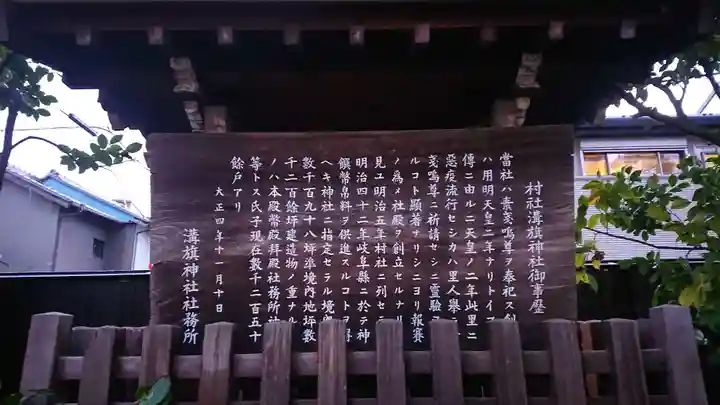 村社溝旗神社御事歴
當社ハ素戔嗚尊ヲ奉祀ス創
ハ用明天皇二年ナリトイフ
傳ニ由ルニ天皇ノ二年此里ニ
惡疫流行セシカハ里人擧
戔嗚尊ニ祈請セシニ靈驗
ルコト顯著ナリシニヨリ報賽
ノ爲メ社殿ヲ創立セルナリ
見ユ明治五年村社ニ列セ
明治四十二年岐阜縣ニ於テ神
饌幣帛料ヲ供進スルコトヲ得
ヘキ神社ニ指定セラル境
數千百九十八坪準境內地坪數
千二百餘坪建造物ノ重ナル
ノハ本殿幣殿拜殿社務所
等トス氏子現在數千二百五十
餘戸アリ
大正四年十一月十日
溝旗神社社務所